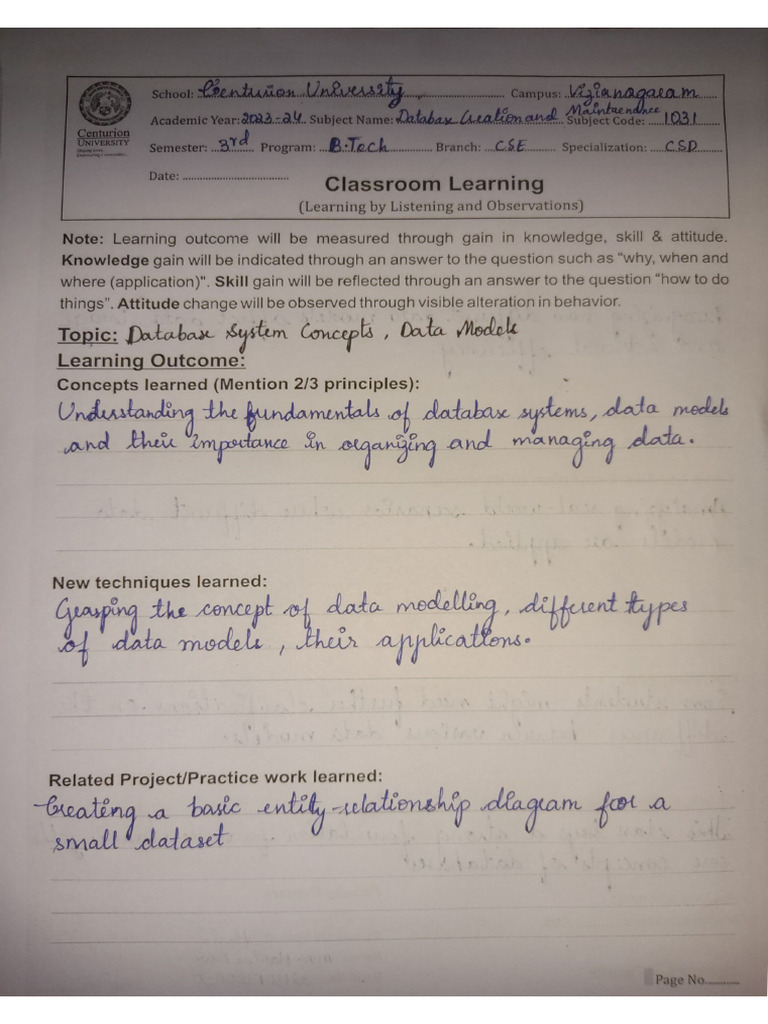 School: Centurion University Campus: Vizianagaram
Academic Year: 2023-24 Subject Name: Database Creation and Maintaendance Subject Code: 1031
Semester: 3rd Program: B.Tech Branch: CSE Specialization: CSD
Date:
Centurion
UNIVERSITY
Classroom Learning
(Learning by Listening and Observations)
Note: Learning outcome will be measured through gain in knowledge, skill & attitude.
Knowledge gain will be indicated through an answer to the question such as "why, when and
where (application)". Skill gain will be reflected through an answer to the question "how to do
things". Attitude change will be observed through visible alteration in behavior.
Topic: Database System Concepts, Data Models
Learning Outcome:
Concepts learned (Mention 2/3 principles):
Understanding the fundamentals of database systems, data models
and their importance in organizing and managing data.
New techniques learned:
Grasping the concept of data modelling, different types
of data models, their applications.
Related Project/Practice work learned:
Creating a basic entity-relationship diagram for a
small dataset
Page No.